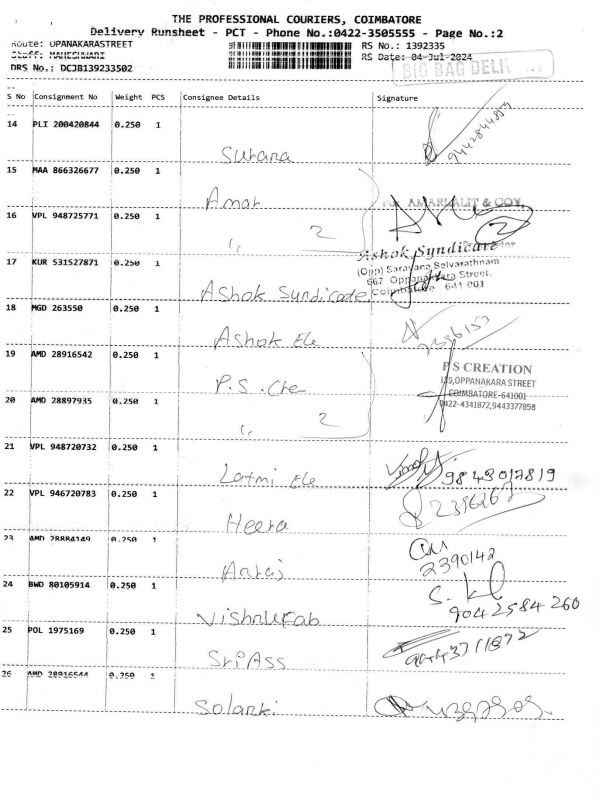 THE PROFESSIONAL COURIERS, COIMBATORE
Delivery Runsheet - PCT - Phone No.:0422-3505555 - Page No.:2
Route: OPANAKARASTREET
RS No.: 1392335
Staff: MAHESHWARI
RS Date: 04-Jul-2024
DRS No.: DCJB139233502
BIG BAG DELI
S No Consignment No Weight PCS Consignee Details Signature
14 PLI 200420844 0.250 1 Surana 9442844859
15 MAA 866326677 0.250 1 Amar
AMARLALIT & COY,
16 VPL 948725771 0.250 1 " 2 2
Ashok Syndicate
(Opp) Saravana Selvarathnam
667 Oppanakkara Street,
Coimbatore 641 001
17 KUR 531527871 0.250 1 Ashok Syndicate
18 MGD 263550 0.250 1 Ashok Ele
19 AMD 28916542 1 P.S. Cre
P S CREATION
139,OPPANAKARA STREET
COIMBATORE-641001
0422-4341872,9443377858
20 AMD 28897935 1 " 2
21 VPL 948720732 0.250 1 Latmi Ele 9843017819
22 VPL 946720783 0.250 1 Heera 2396267
23 AMD 28884149 0.250 1 2390142
24 BWD 80105914 0.250 1 Vishnufab S. 9042584260
25 POL 1975169 0.250 1 Sri Ass
26 AMD 28916544 0.250 1 Solanki